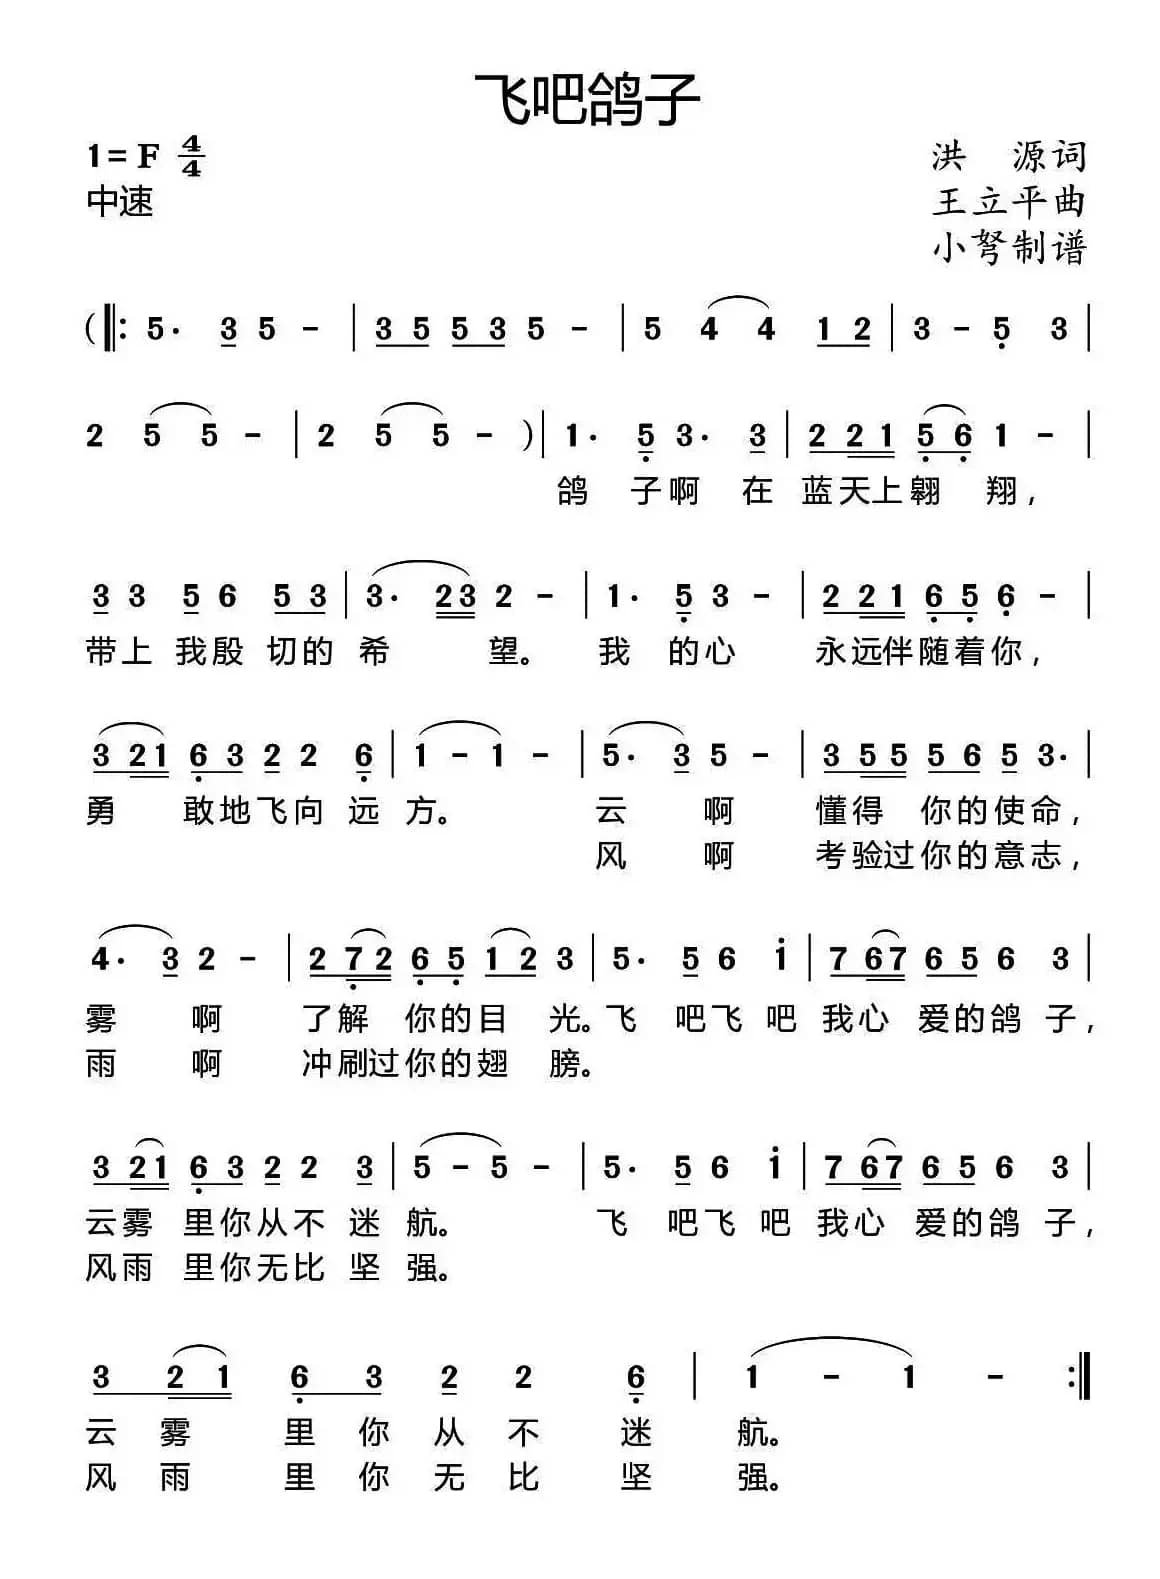 飞吧鸽子
1=F 4/4
洪 源词
中速
王立平曲
小弩制谱
(‖: 5· 3 5 - | 3 5 5 3 5 - | 5 4 4 1 2 | 3 - 5 3 |
2 5 5 - | 2 5 5 - )| 1· 5 3· 3 | 2 2 1 5 6 1 - |
鸽 子啊 在 蓝天上翱 翔,
3 3 5 6 5 3 | 3· 2 3 2 - | 1· 5 3 - | 2 2 1 6 5 6 - |
带上 我殷 切的 希 望。 我 的心 永远伴随着你,
3 2 1 6 3 2 2 6 | 1 - 1 - | 5· 3 5 - | 3 5 5 5 6 5 3· |
勇 敢地飞向 远 方。 云 啊 懂得 你的使命,
风 啊 考验过你的意志,
4· 3 2 - | 2 7 2 6 5 1 2 3 | 5· 5 6 i | 7 6 7 6 5 6 3 |
雾 啊 了解 你的目 光。飞 吧飞 吧 我心 爱的鸽 子,
雨 啊 冲刷过你的翅 膀。
3 2 1 6 3 2 2 3 | 5 - 5 - | 5· 5 6 i | 7 6 7 6 5 6 3 |
云雾 里你从不 迷 航。 飞 吧飞 吧 我心 爱的鸽 子,
风雨 里你无比 坚 强。
3 2 1 6 3 2 2 6 | 1 - 1 - :‖
云 雾 里 你 从 不 迷 航。
风 雨 里 你 无 比 坚 强。